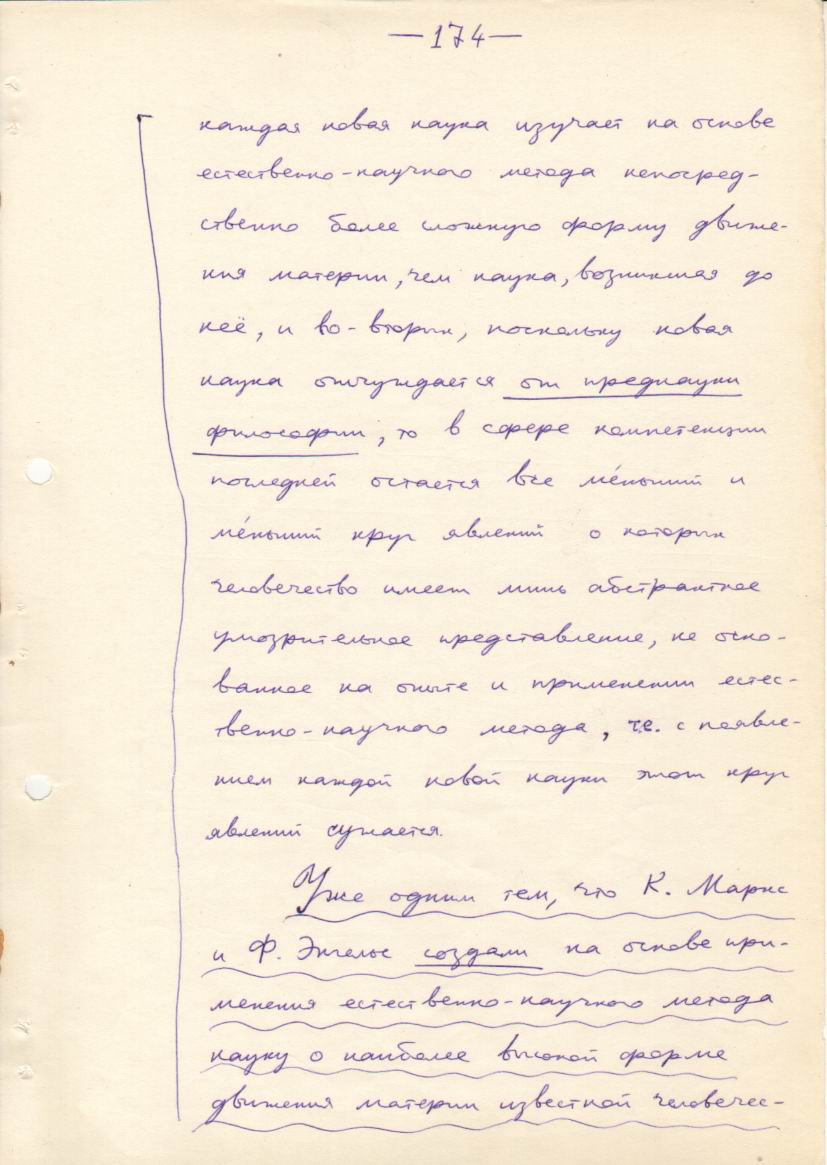 —174—
каждая новая наука изучает на основе
естественно-научного метода непосред-
ственно более сложную форму движе-
ния материи, чем наука, возникшая до
неё, и во-вторых, поскольку новая
наука отчуждается от преднауки
философии, то в сфере компетенции
последней остается все ме́ньший и
ме́ньший круг явлений о которых
человечество имеет лишь абстрактное
умозрительное представление, не осно-
ванное на опыте и применении естес-
твенно-научного метода, т.е. с появле-
нием каждой новой науки этот круг
явлений сужается.
Уже одним тем, что К. Маркс
и Ф. Энгельс создали на основе при-
менения естественно-научного метода
науку о наиболее высокой форме
движения материи известной человечес-